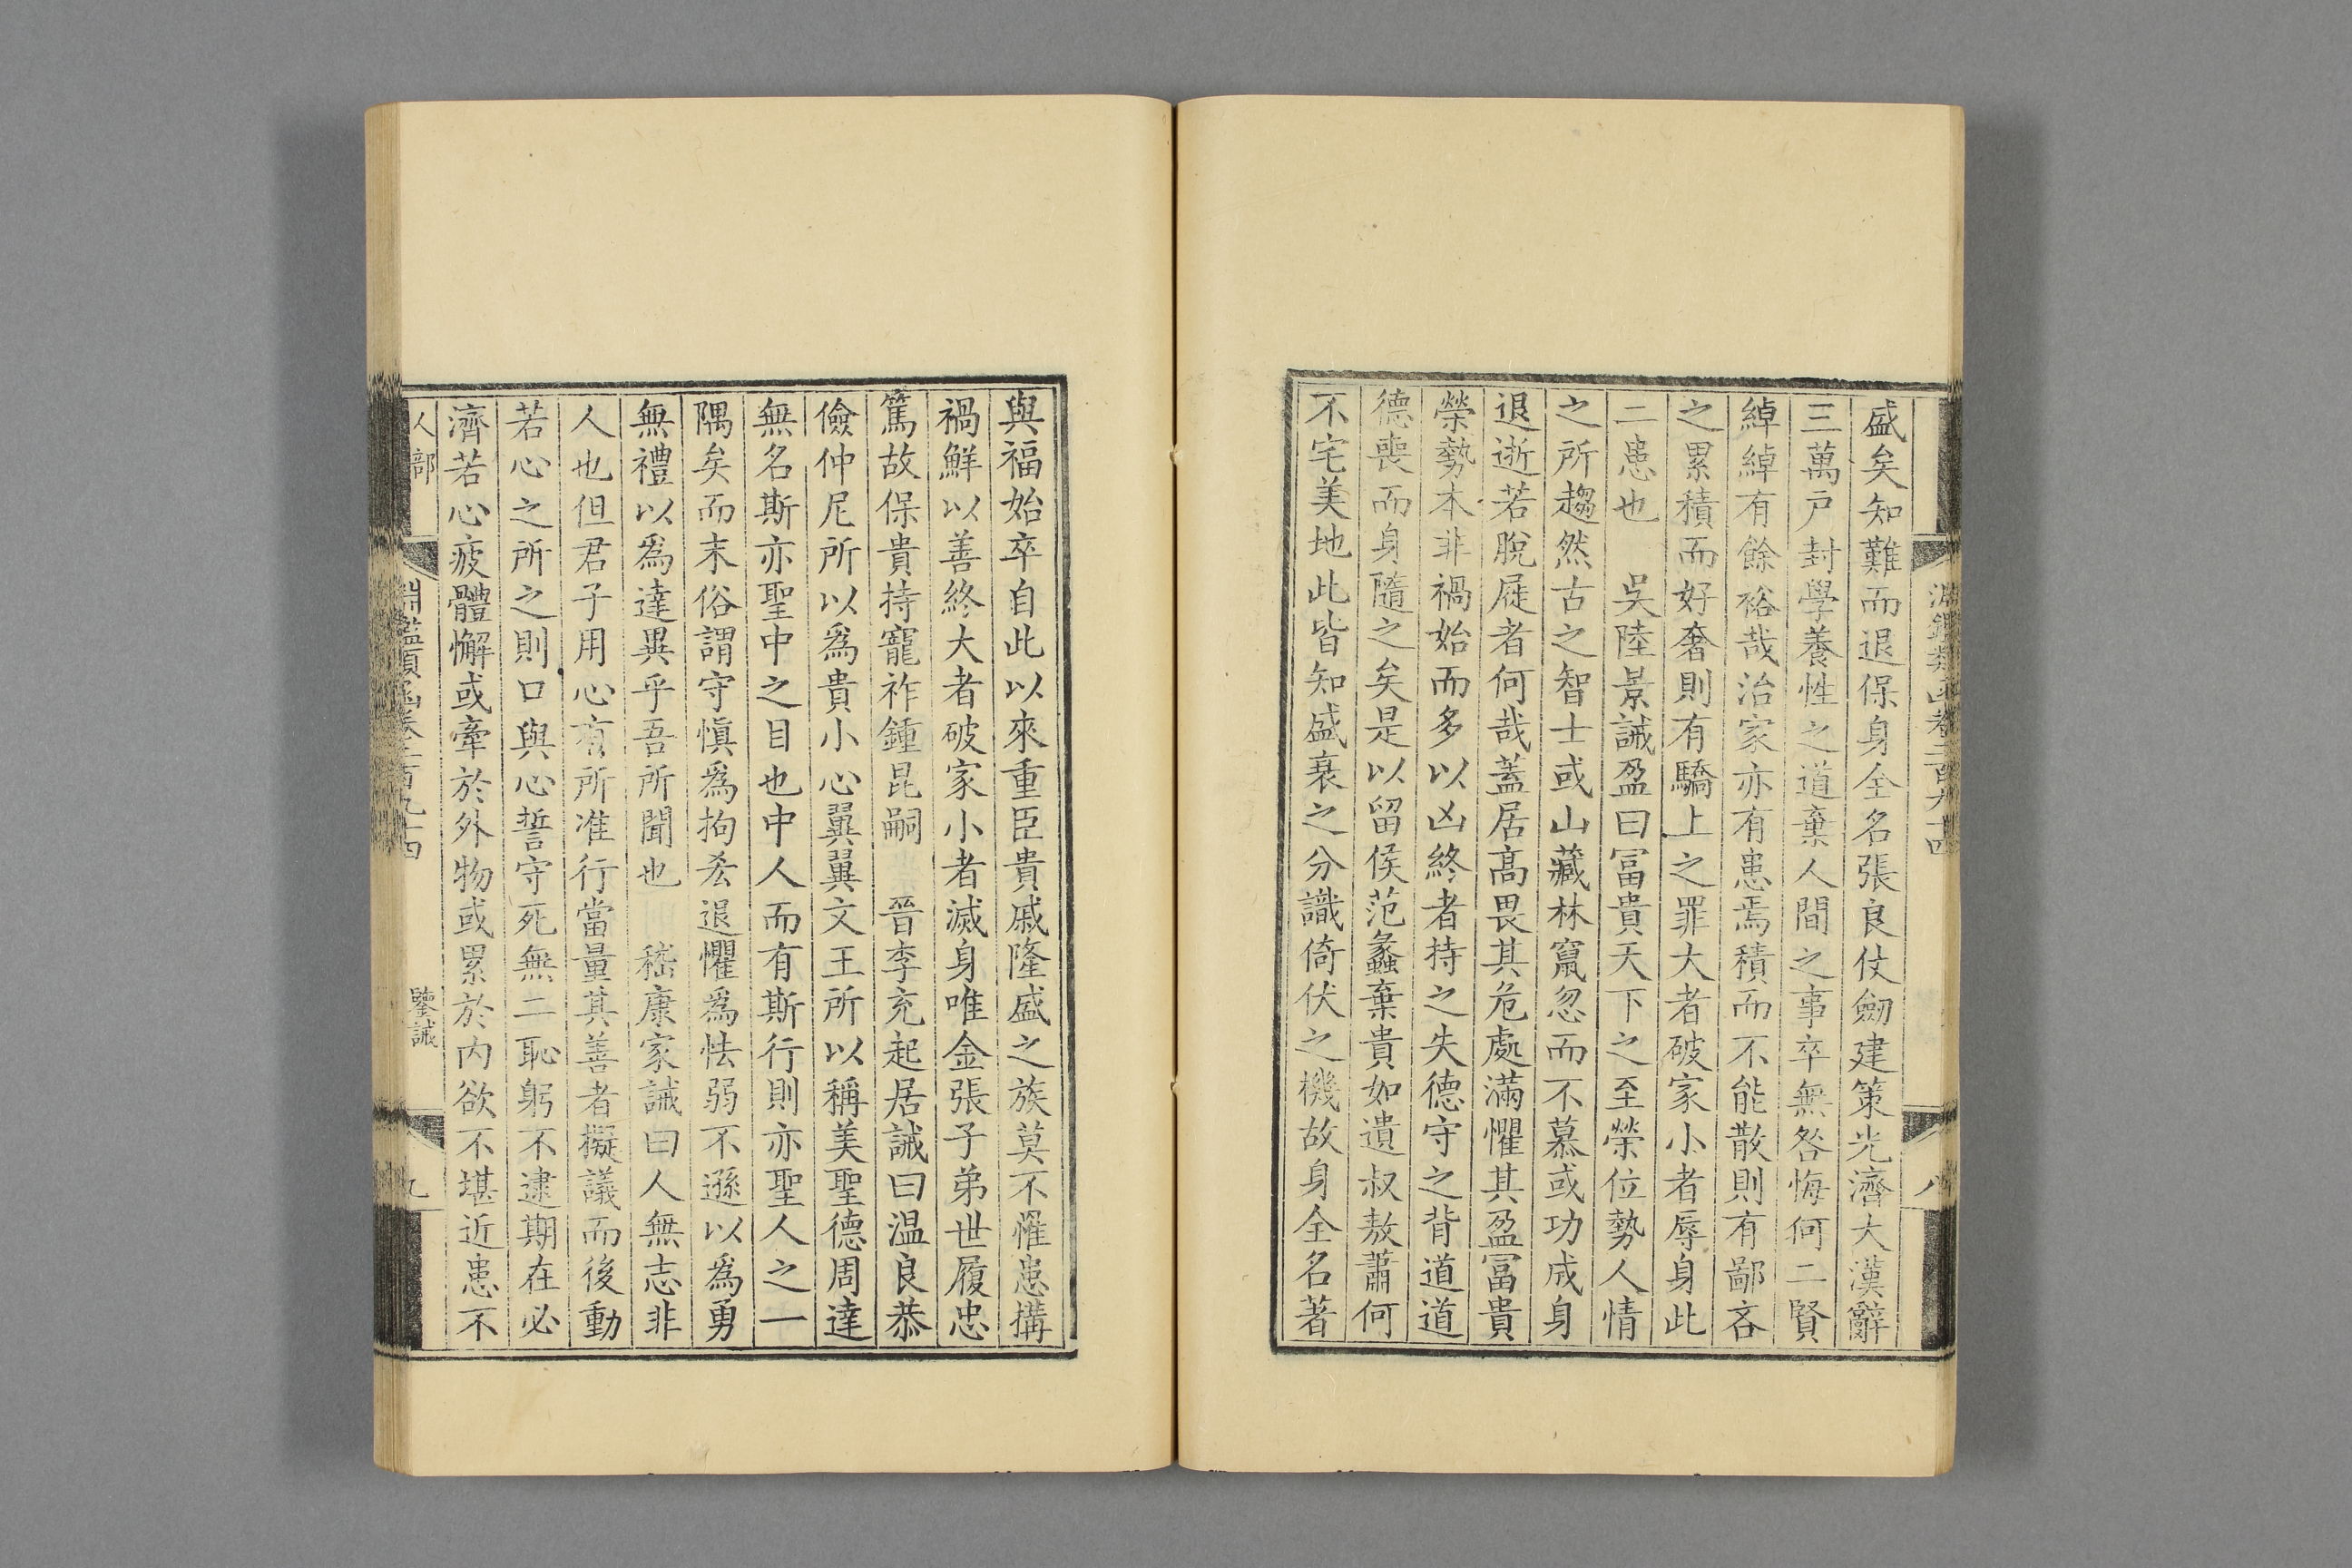 盛矣知難而退保身全名張良仗劒建策光濟大漢辭
三萬戸封學養性之道棄人間之事卒無咎悔何二賢
綽綽有餘裕哉治家亦有患焉積而不能散則有鄙吝
之累積而好奢則有驕上之罪大者破家小者辱身此
二患也　吳陸景誡盈曰冨貴天下之至榮位勢人情
之所趨然古之智士或山藏林竄忽而不慕或功成身
退逝若脫屣者何哉蓋居高畏其危處滿懼其盈冨貴
榮勢本非禍始而多以凶終者持之失德守之背道道
德喪而身隨之矣是以留侯范蠡棄貴如遺叔敖蕭何
不宅美地此皆知盛衰之分識倚伏之機故身全名著
淵鑑類函卷二百九十四
八
與福始卒自此以來重臣貴戚隆盛之族莫不罹患搆
禍鮮以善終大者破家小者滅身唯金張子弟世履忠
篤故保貴持寵祚鍾昆嗣　晉李充起居誡曰温良恭
儉仲尼所以爲貴小心翼翼文王所以稱美聖德周達
無名斯亦聖中之目也中人而有斯行則亦聖人之一
隅矣而末俗謂守愼爲拘吝退懼爲怯弱不遜以爲勇
無禮以爲達異乎吾所聞也　嵇康家誡曰人無志非
人也但君子用心有所准行當量其善者擬議而後動
若心之所之則口與心誓守死無二恥躬不逮期在必
濟若心疲體懈或牽於外物或累於内欲不堪近患不
人部
淵鑑類函卷二百九十四
鑒誡
九